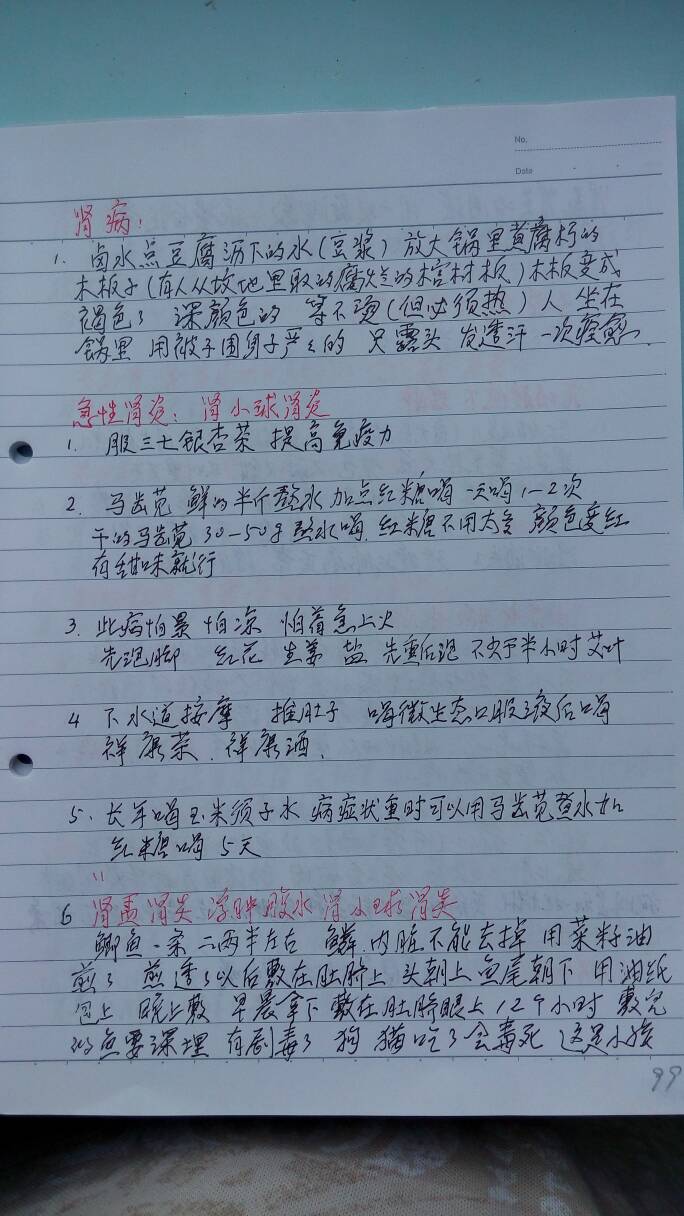 No.
Date
肾病:
1. 卤水点豆腐沥下的水(豆浆) 放大锅里煮腐朽的
木板子(有人从坟地里取的腐烂的棺材板)木板变成
褐色了 深颜色的 等不烫(但必须热) 人 坐在
锅里 用被子围身子严严的 只露头 发透汗 一次痊愈.
急性肾炎: 肾小球肾炎
1. 服三七银杏茶 提高免疫力
2. 马齿苋 鲜的半斤熬水 加点红糖喝 一天喝1-2次
干的马齿苋30-50g熬水喝. 红糖不用太多 颜色变红
有甜味就行
3. 此病怕累 怕凉 怕着急上火
先泡脚 红花 生姜 盐 先熏后泡 不少于半小时 艾叶
4 下水道按摩 推肚子 喝微生态口服液后喝
祥康茶. 祥康酒.
5. 长年喝玉米须子水 病症状重时可以用马齿苋煮水加
红糖喝 5天
6 肾盂肾炎 浮肿腹水 肾小球肾炎
鲫鱼一条 二两半左右 鳞.内脏不能去掉 用菜籽油
煎了 煎透了以后敷在肚脐上 头朝上 鱼尾朝下 用油纸
包上 晚上敷 早晨拿下 敷在肚脐眼上 12个小时 敷完
的鱼要深埋 有剧毒了 狗 猫吃了会毒死 这是小孩
99